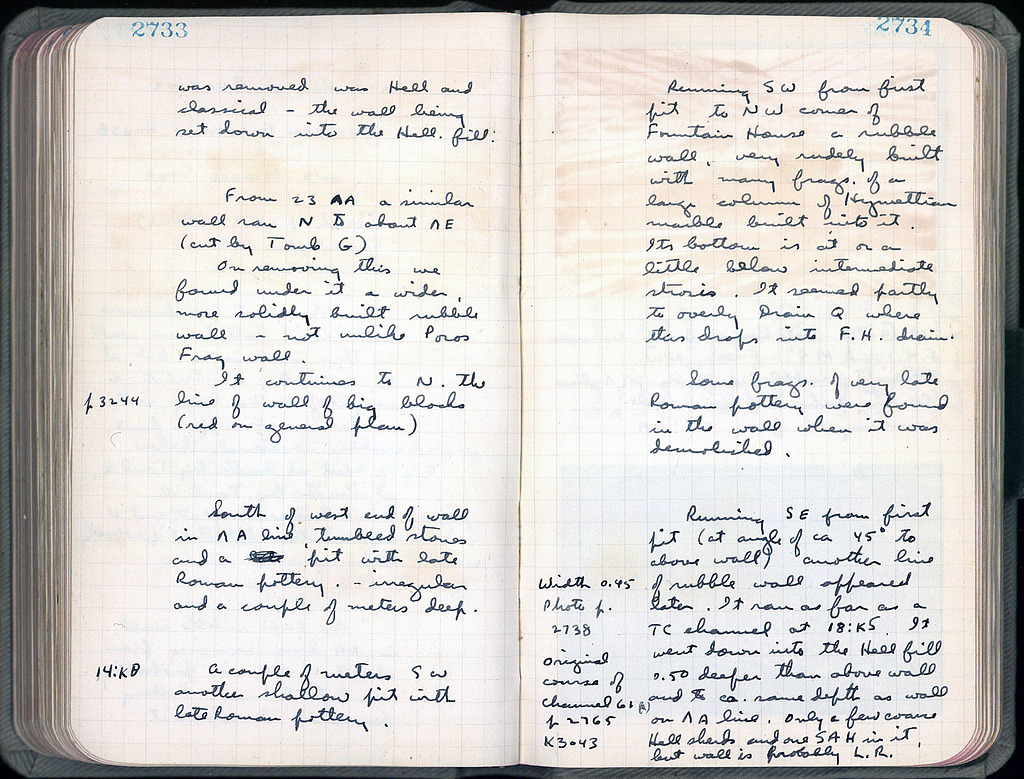 2733
was removed was Hell and
classical – the wall being
set down into the Hell. fill:
From 23 ΛΑ a similar
wall ran N to about ΛΕ
(cut by Tomb G)
On removing this we
found under it a wider,
more solidly built rubble
wall – not unlike Poros
Frag wall.
It continues to N. the
p 3244 line of wall of big blocks
(red on general plan)
South of west end of wall
in ΛΑ line, tumbled stones
and a pit with late
Roman pottery. – irregular
and a couple of meters deep.
14:ΚΘ A couple of meters SW
another shallow pit with
late Roman pottery.
2734
Running SW from first
pit to NW corner of
Fountain House a rubble
wall, very rudely built
with many frags. of a
large column of Hymettian
marble built into it.
Its bottom is at or a
little below intermediate
strosis. It seemed partly
to overly Drain Q where
this drops into F.H. drain.
Some frags. of very late
Roman pottery were found
in the wall when it was
demolished.
Running SE from first
pit (at angle of ca 45° to
above wall) another line
of rubble wall appeared
later. It ran as far as a
TC channel at 18:ΚS. It
went down into the Hell fill
0.50 deeper than above wall
and to ca. same depth as wall
on ΛΑ line. Only a few coarse
Hell sherds and one SAH in it,
but wall is probably L.R.
Width 0.45
Photo p.
2738
original
course of
channel G1
p 2765
K3043